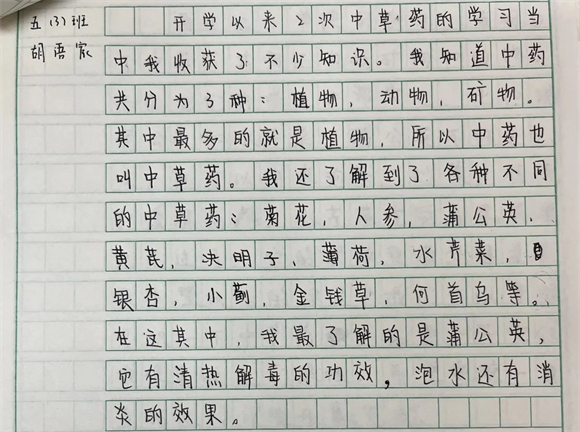 五(3)班
胡语宸
开学以来2次中草药的学习当
中我收获了不少知识。我知道中药
共分为3种：植物，动物，矿物。
其中最多的就是植物，所以中药也
叫中草药。我还了解到了各种不同
的中草药：菊花，人参，蒲公英，
黄芪，决明子，薄荷，水芹菜，
银杏，小蓟，金钱草，何首乌等。
在这其中，我最了解的是蒲公英，
它有清热解毒的功效，泡水还有消
炎的效果。